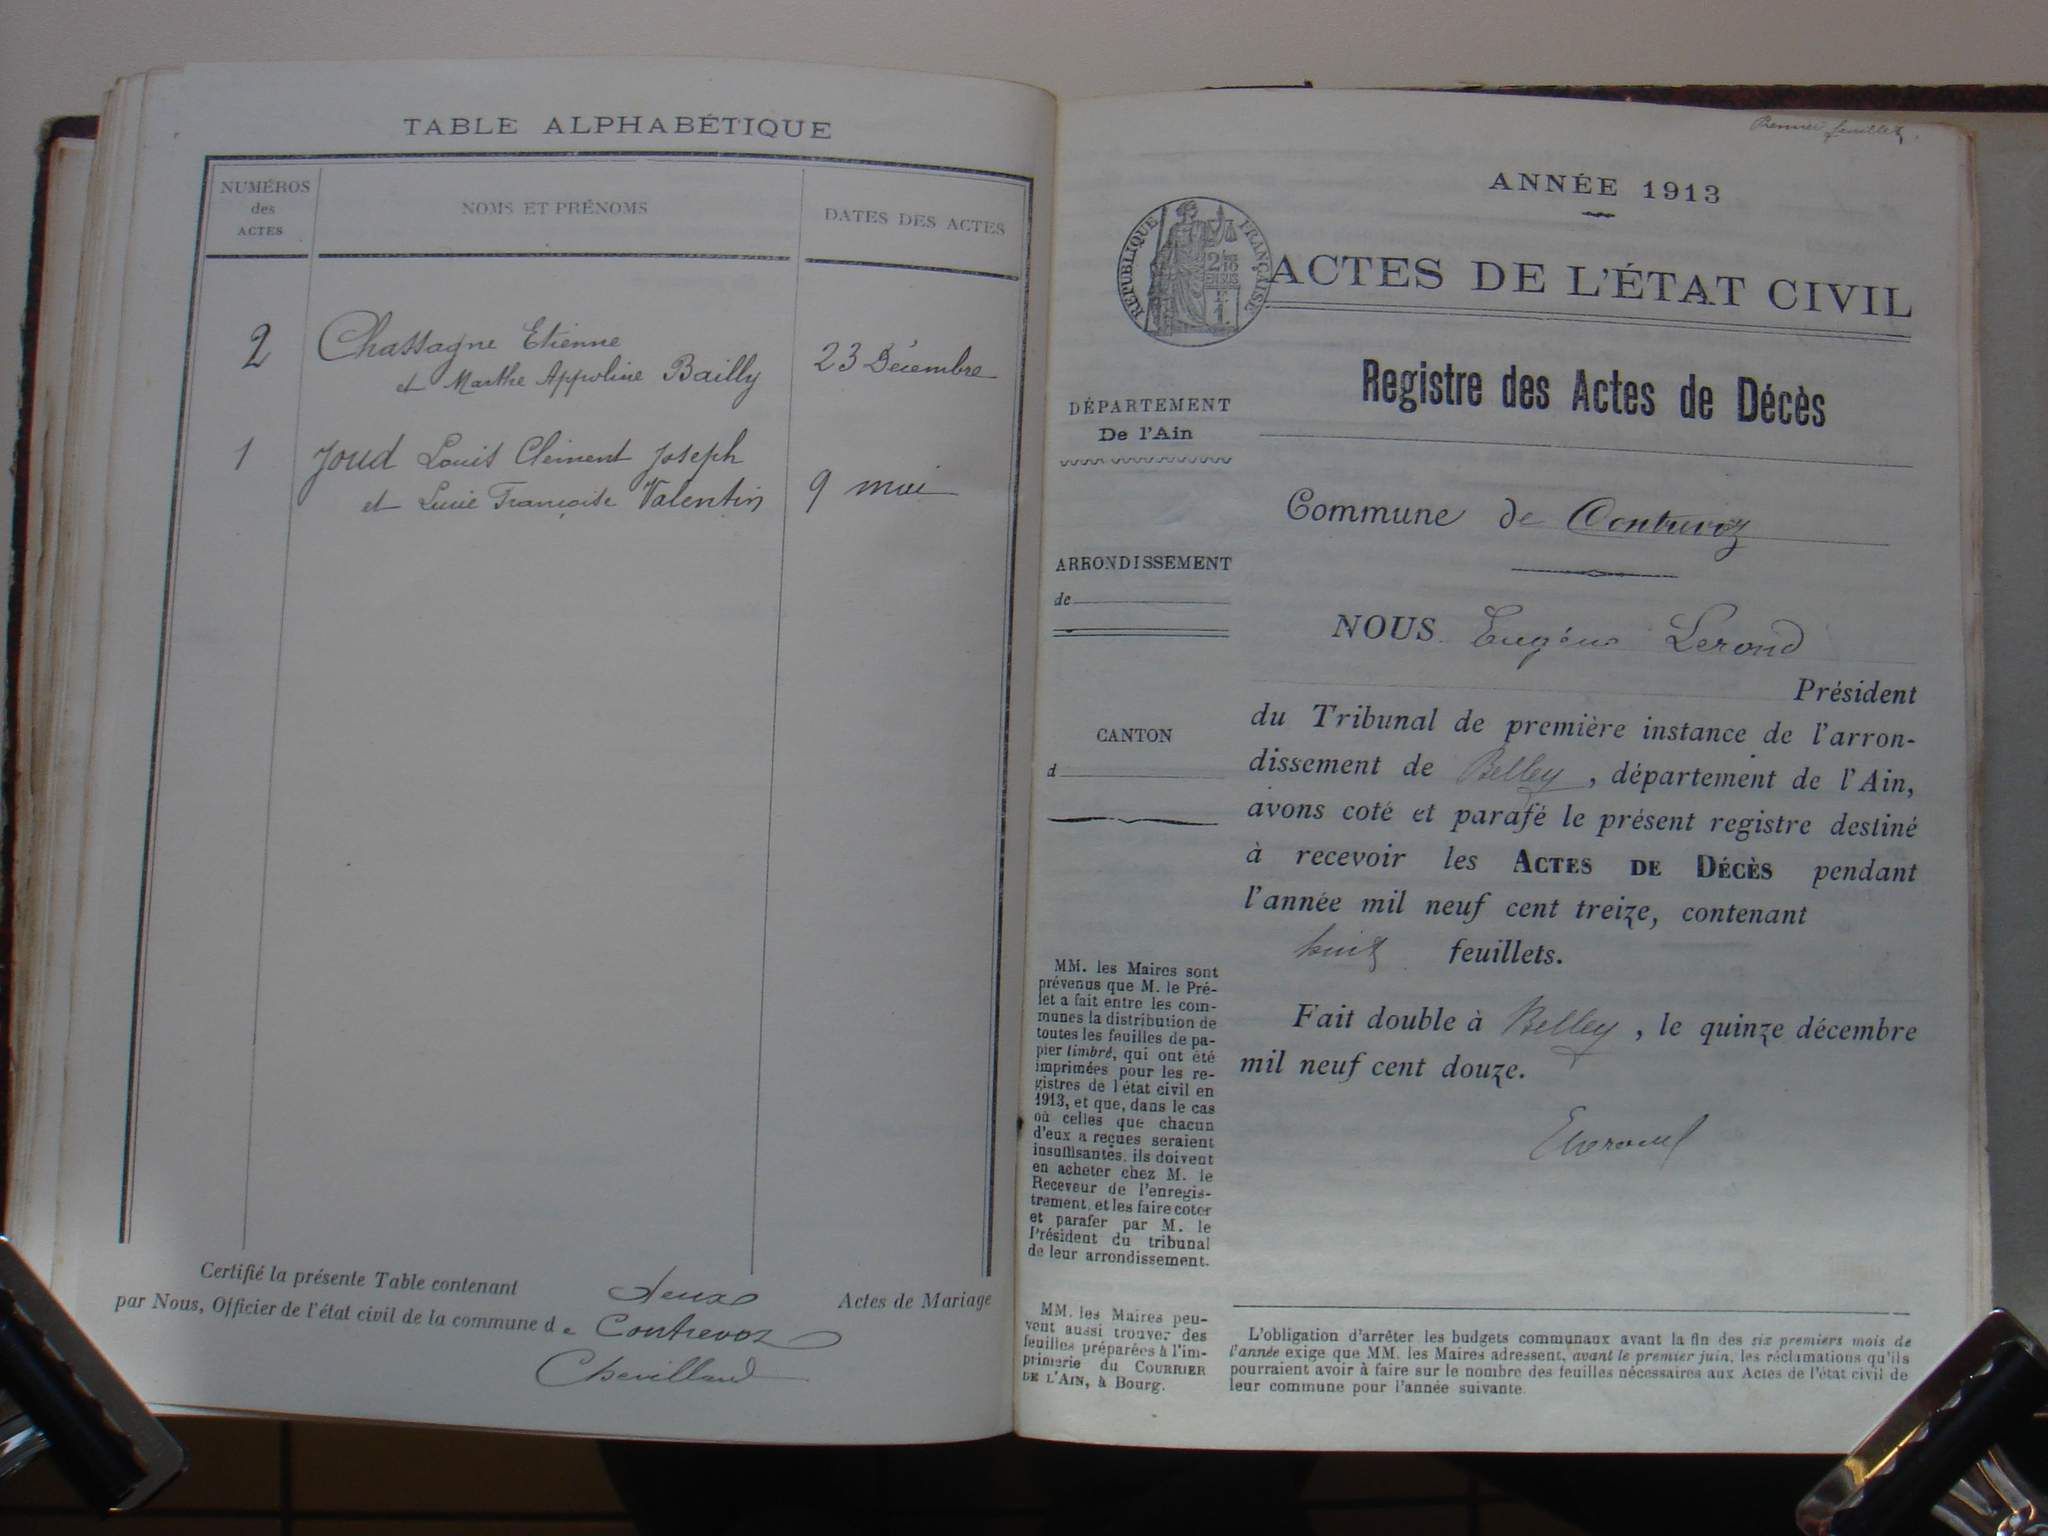 TABLE ALPHABÉTIQUE
NUMÉROS
des
ACTES
NOMS ET PRÉNOMS
DATES DES ACTES
2
Chassagne Etienne
et Marthe Appoline Bailly
23 Décembre
1
Joud Louis Clément Joseph
et Lucie Françoise Valentin
9 mai
Certifié la présente Table contenant deux Actes de Mariage
par Nous, Officier de l'état civil de la commune d e Contrevoz
Chevilland
Premier feuillet.
ANNÉE 1913
RÉPUBLIQUE FRANÇAISE
ACTES DE L'ÉTAT CIVIL
Registre des Actes de Décès
DÉPARTEMENT
De l'Ain
Commune de Contrevoz
ARRONDISSEMENT
de
NOUS Eugène Lerond
Président
du Tribunal de première instance de l'arron-
dissement de Belley, département de l'Ain,
avons coté et parafé le présent registre destiné
à recevoir les ACTES DE DÉCÈS pendant
l'année mil neuf cent treize, contenant
huit feuillets.
Fait double à Belley, le quinze décembre
mil neuf cent douze.
CANTON
d
MM. les Maires sont
prévenus que M. le Pré-
fet a fait entre les com-
munes la distribution de
toutes les feuilles de pa-
pier timbré, qui ont été
imprimées pour les re-
gistres de l'état civil en
1913, et que, dans le cas
où celles que chacun
d'eux a reçues seraient
insuffisantes, ils doivent
en acheter chez M. le
Receveur de l'enregis-
trement, et les faire coter
et parafer par M. le
Président du tribunal
de leur arrondissement.
MM. les Maires peu-
vent aussi trouver des
feuilles préparées à l'im-
primerie du COURRIER
DE L'AIN, à Bourg.
L'obligation d'arrêter les budgets communaux avant la fin des six premiers mois de
l'année exige que MM. les Maires adressent, avant le premier juin, les réclamations qu'ils
pourraient avoir à faire sur le nombre des feuilles nécessaires aux Actes de l'état civil de
leur commune pour l'année suivante.